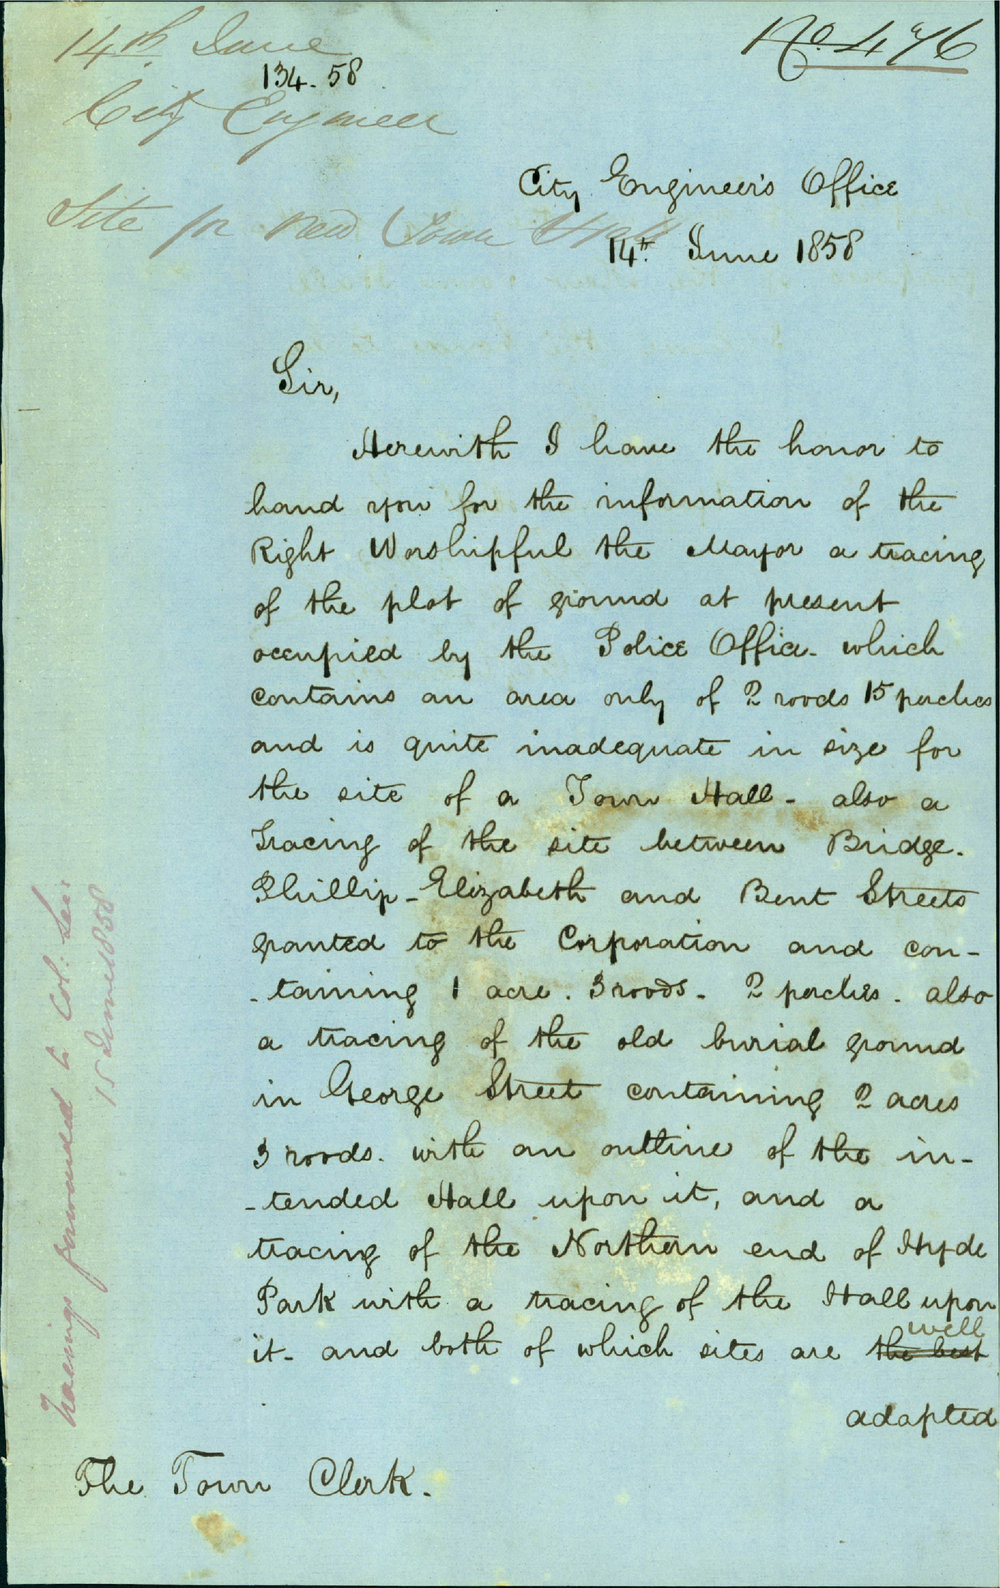 14th June
No. 476
134.58
City Engineer
City Engineer's Office
Site for new Town Hall
14th June 1858
Sir,
Herewith I have the honor to
hand you for the information of the
Right Worshipful the Mayor a tracing
of the plot of ground at present
occupied by the Police Office - which
contains an area only of 2 roods 15 perches
and is quite inadequate in size for
the site of a Town Hall - also a
Tracing of the site between Bridge -
Phillip - Elizabeth and Bent Streets
granted to the Corporation and con-
-taining 1 acre . 3 roods - 2 perches - also
a tracing of the old burial ground
in George Street containing 2 acres
3 roods . with an outline of the in-
-tended Hall upon it, and a
tracing of the Northern end of Hyde
Park with a tracing of the Hall upon
well
it - and both of which sites are the best
adapted
The Town Clerk.
Tracings forwarded to Col: Sec:
15 June 1858